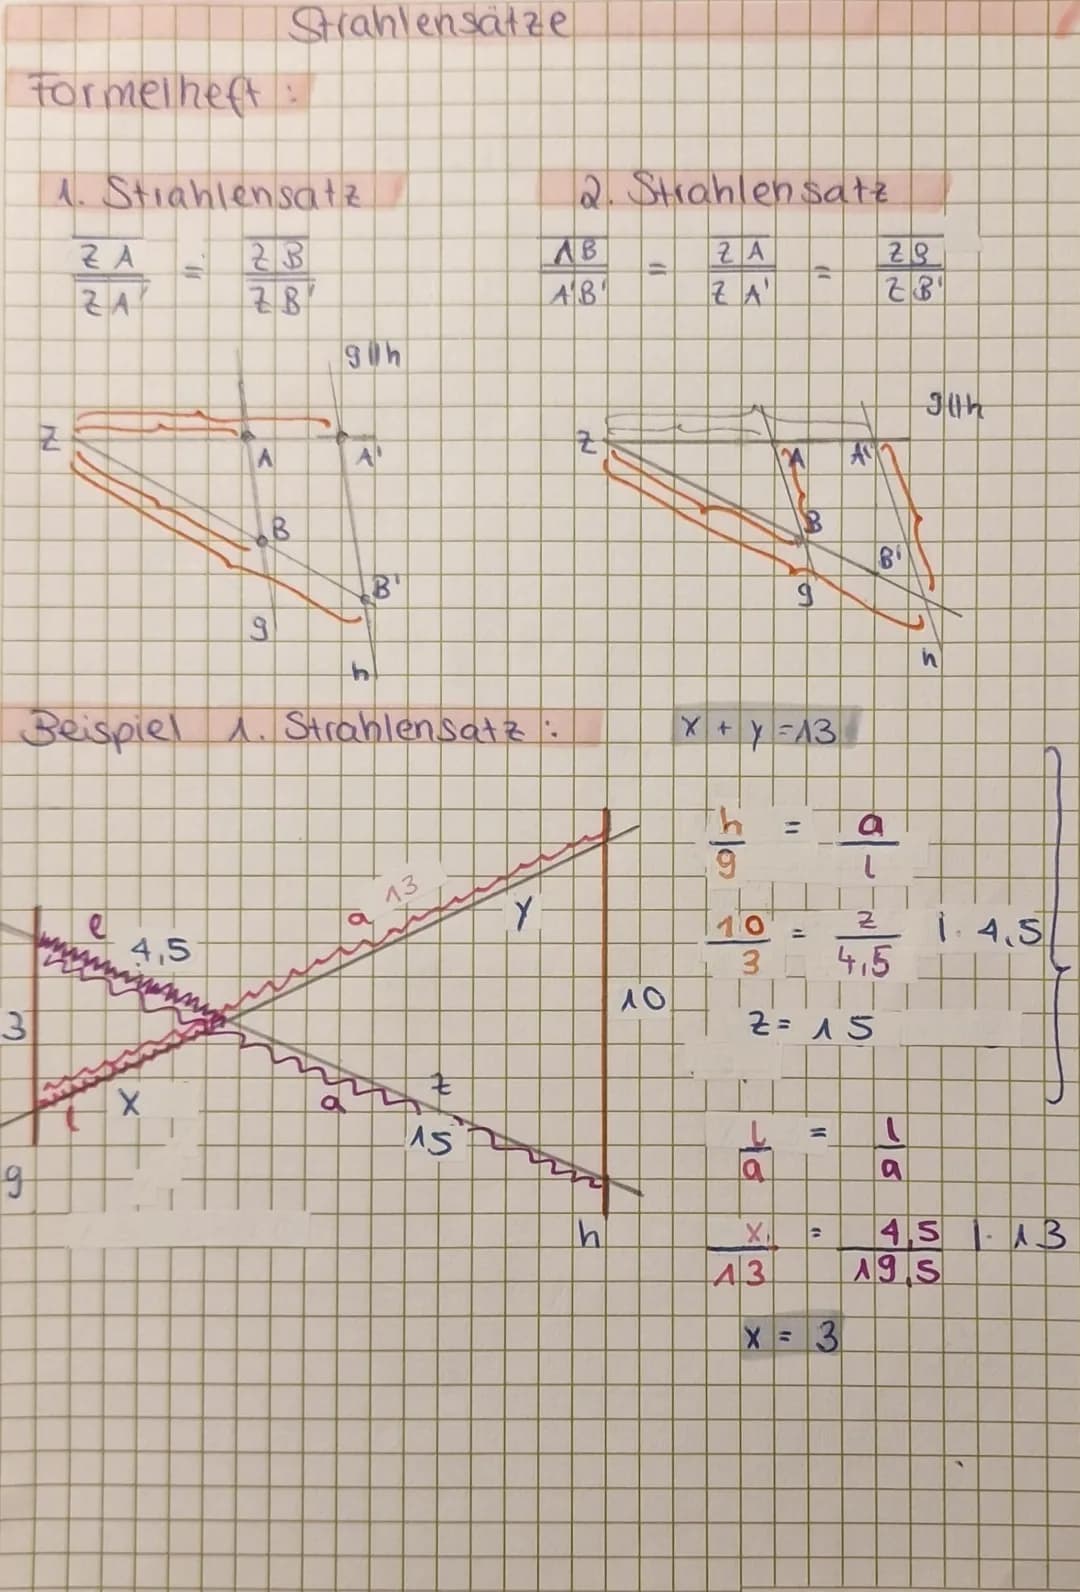 Strahlensätze
Formelheft :
1. Strahlensatz
ZA / ZA' = ZB / ZB'
2. Strahlensatz
AB / A'B' = ZA / ZA' = ZB / ZB'
g||h
Z
A
A'
B
B'
g
h
g||h
Z
A
A'
B
B'
g
h
Beispiel 1. Strahlensatz :
x + y = 13
e
4,5
a 13
y
3
x
l
z
a
15
10
g
h
h / g = a / l
10 / 3 = z / 4,5 |· 4,5
z = 15
l / a = l / a
x / 13 = 4,5 / 19,5 |· 13
x = 3